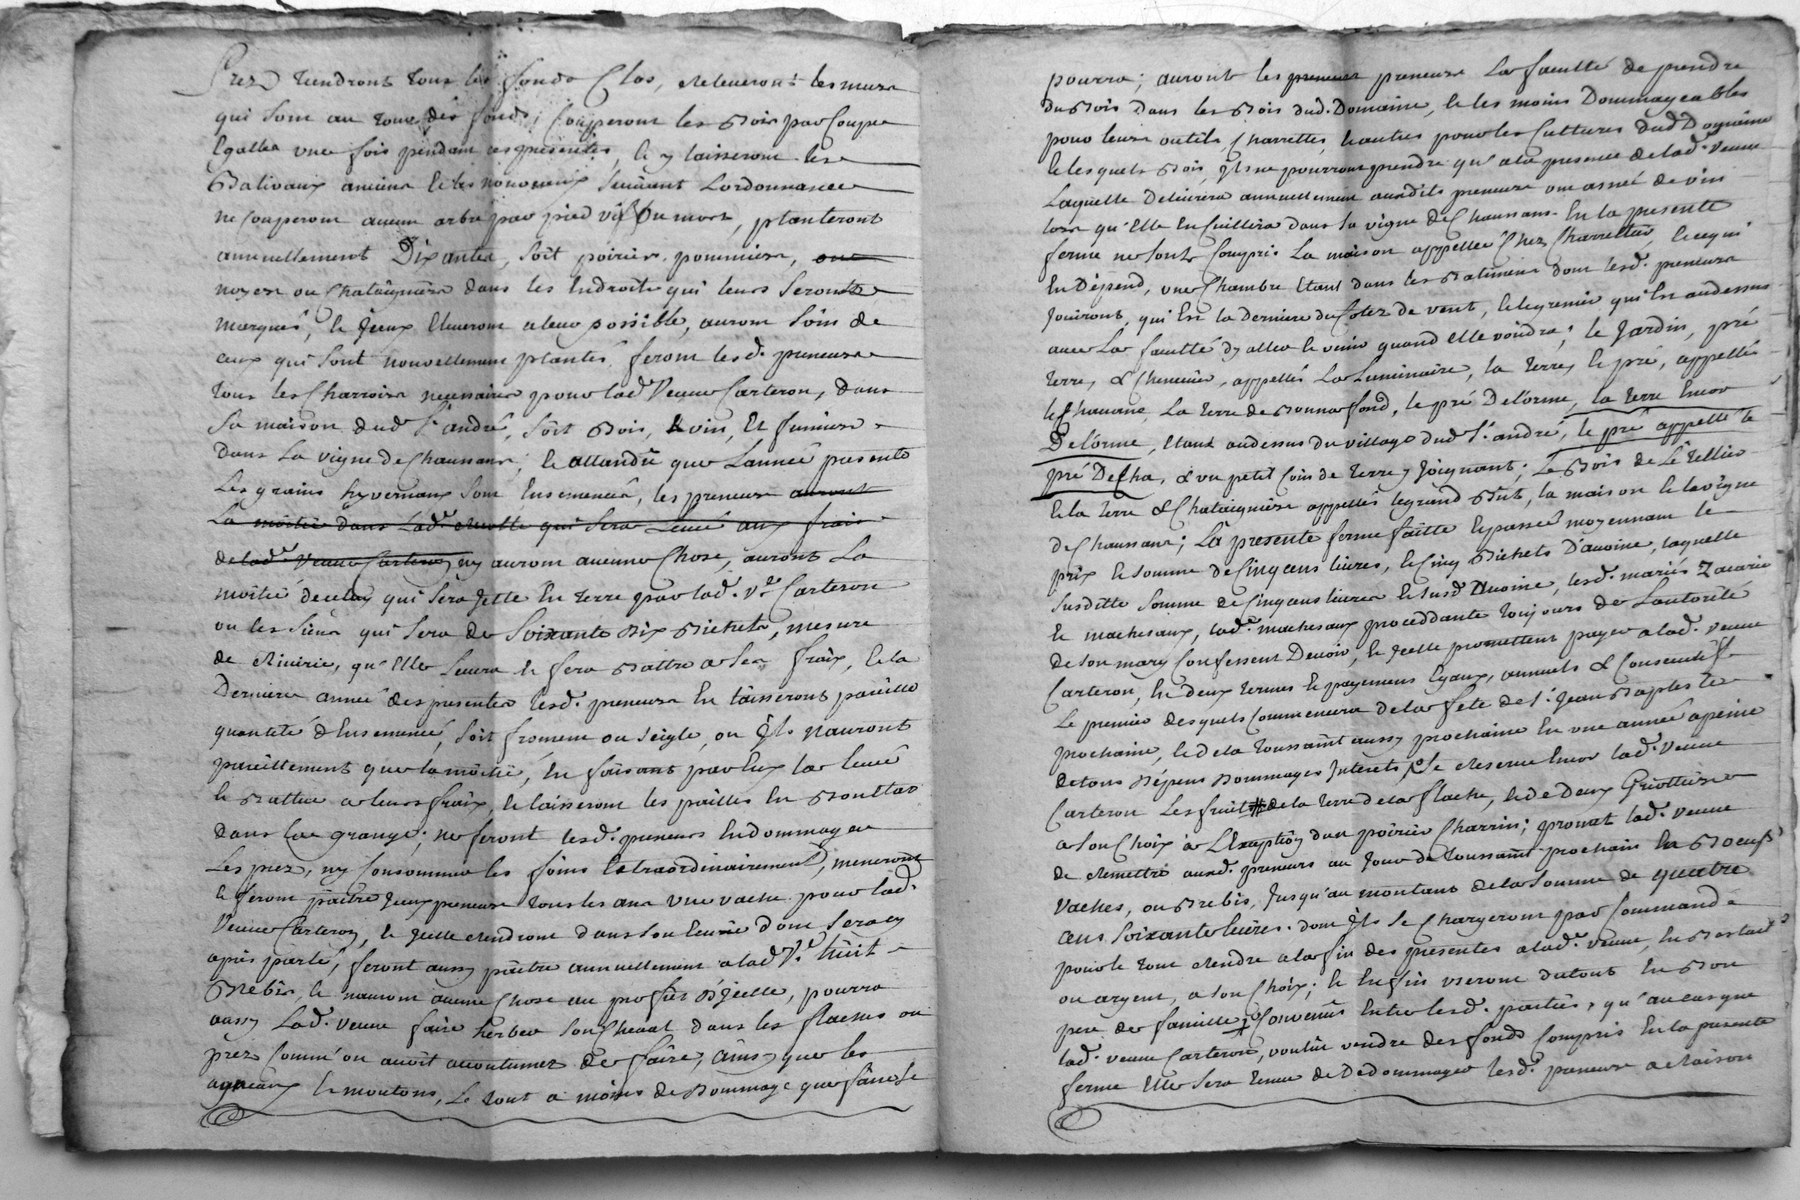 Prez tiendront tous les fonds Clos, releveront les murs
qui sont au tour des fonds; Couperont les Bois par Coupe
Egalles une fois pendant ces presentes, et y laisseront les
Balivaux anciens et les nouveaux suivant Lordonnance
ne Couperont aucun arbre par pied vif ou mort, planteront
annuellement Dix antes, soit poiriers pommiers, ou
noyers ou Chataigniers dans les Endroits qui leurs seront
marqués, et Iceux Eleveront a leur possible, auront soin de
ceux qui sont nouvellement plantés, feront lesd. preneurs
tous les Charrois necessaires pour lad. Veuve Carteron, dans
sa maison dud. St. andré, soit Bois, vin, Et fumiers
dans La vigne de Chaussans; et attendu que Lannée presente
Les grains hyvernaux sont Ensemencés, les preneurs auront
La moitié dans Lad. recolte qui sera Levée aux frais
de lad. Veuve Carteron ny auront aucune Chose, auront La
moitié de celuy qui sera Jetté En terre par lad. Ve. Carteron
ou les siens qui sera de Soixante Dix Bichets, mesure
de Riverie, qu'Elle Levera et fera Battre a ses fraix, et la
Derniere année des presentes lesd. preneurs En laisseront pareille
quantité d'Ensemencé, soit froment ou seigle, ou Ils nauront
pareillement que la moitié, En faisant par Eux la levée
et Battre a leurs fraix, et laisseront les pailles En Bottes
dans la grange; ne feront lesd. preneurs Endommager
Les prez, ny Consommer les foins Extraordinairement, meneront
et feront paitre Iceux preneurs tous les ans une vache pour lad.
Veuve Carteron, et Icelle rendront dans son Ecurie dont sera cy
apres parlé, feront aussy paitre annuellement a lad. Ve. huit
Brebis, et nauront aucune Chose au profit d'Icelle, pourra
aussy Lad. veuve faire herber son Cheval dans les flaches ou
prez Comme on avoit accoutumez de faire, ainsy que les
agneaux Et moutons, Le tout a moins de Dommage que faire se
pourra; auront les preneurs La faculté de prendre
du Bois dans les Bois dud. Domaine, et les moins Dommageables
pour leurs outils Charrettes, et autres pour les Cultures dud. Domaine
et lesquels Bois, Ils ne pourront prendre qu'a la presence de lad. veuve
Laquelle Delivrera annuellement auxdits preneurs une asnée de vin
lors qu'Elle En Cuillira dans sa vigne de Chaussans. En la presente
ferme ne sont Compris La maison appellée Chez Charrettier, et ce qui
En Dépend, une Chambre Etant dans les Batiments dont lesd. preneurs
Jouiront, qui Est la Derniere du Cotez de vent, et le grenier qui Est au dessus
avec La faculté d'y aller et venir quand Elle voudra; le Jardin, pré
terre, & Cheneviere, appellés La Luminaire, la terre, et pré, appellés
le Chavane, La terre de Bonnefond, le pré Delorme, la terre Enor
Delorme, Etant au dessus du village dud. St. andré, le pré appellé le
pré De Cha, & un petit Coin de terre y Joignant; Le Bois de Letellier
et la terre & Chataigniere appellés le grand , la maison et la vigne
de Chaussans; La presente ferme faitte Et passée moyennant le
prix et somme de Cinq cens livres, et Cinq Bichets D'avoine, laquelle
susditte somme de Cinq cens livres et susd. avoine, lesd. mariés Zacarie
et Machesaux, lad. Machesaux proceddante toujours de Lautorité
de son mary Confessent Devoir, et Icelle promettent payer a lad. veuve
Carteron, En deux termes et payemens Egaux, annuels & Consecutifs
Le premier desquels Commencera de la fete de St. Jean Baptiste
prochaine, et de la toussaint aussy prochaine En une année a peine
de tous Dépens Dommages Interets, Se reserve Enor lad. veuve
Carteron Les fruits # de la terre de la flache, et de Deux Griottiers
a son Choix a L'Exception d'un poirier Charrin; promet lad. veuve
de remettre auxd. preneurs au Jour de toussaint prochain En Boeufs
vaches, ou Brebis, Jusqu'au montant de la somme de quatre
cens soixante livres. dont Ils se Chargeront par Commande
pour le tout rendre a la fin des presentes a lad. veuve, En Bestaux
ou argent, a son Choix; et Enfin useront du tout En Bon
pere de famille, Convenus Entre lesd. parties, qu'au cas que
lad. veuve Carteron, voulut vendre des fonds Compris En la presente
ferme Elle sera tenue de Dedommager lesd. preneurs a raison